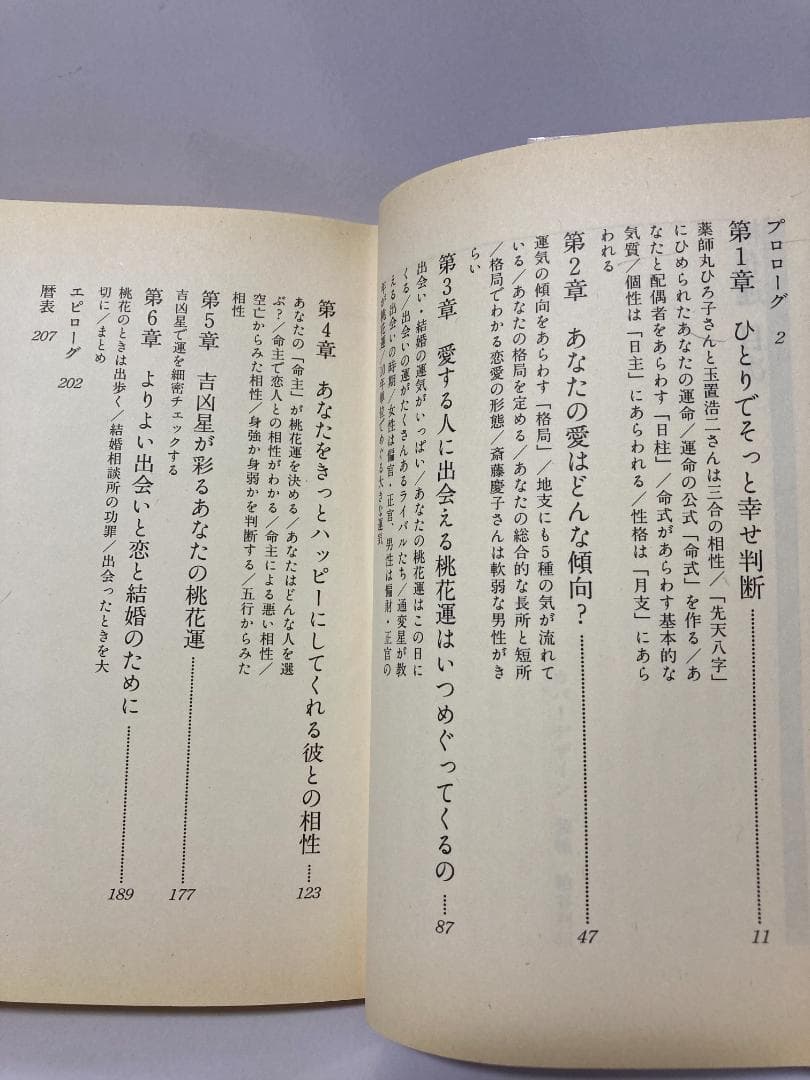 プロローグ 2
第1章 ひとりでそっと幸せ判断…… 11
薬師丸ひろ子さんと玉置浩二さんは三合の相性／「先天八字」
にひめられたあなたの運命／運命の公式「命式」を作る／あ
なたと配偶者をあらわす「日柱」／命式があらわす基本的な
気質／個性は「日主」にあらわれる／性格は「月支」にあら
われる
第2章 あなたの愛はどんな傾向？…… 47
運気の傾向をあらわす「格局」／地支にも5種の気が流れて
いる／あなたの格局を定める／あなたの総合的な長所と短所
／格局でわかる恋愛の形態／斎藤慶子さんは軟弱な男性がき
らい
第3章 愛する人に出会える桃花運はいつめぐってくるの…… 87
出会い・結婚の運気がいっぱい／あなたの桃花運はこの日に
くる／出会いの運がたくさんあるライバルたち／通変星が教
える出会いの時期／女性は偏官・正官、男性は偏財・正官の
年が桃花運／10年単位でめぐる大きな運気
第4章 あなたをきっとハッピーにしてくれる彼との相性…… 123
あなたの「命主」が桃花運を決める／あなたはどんな人を選
ぶ？／命主で恋人との相性がわかる／命主による悪い相性／
空亡からみた相性／身強か身弱かを判断する／五行からみた
相性
第5章 吉凶星が彩るあなたの桃花運…… 177
吉凶星で運を細密チェックする
第6章 よりよい出会いと恋と結婚のために…… 189
桃花のときは出歩く／結婚相談所の功罪／出会ったときを大
切に／まとめ
エピローグ 202
暦表 207